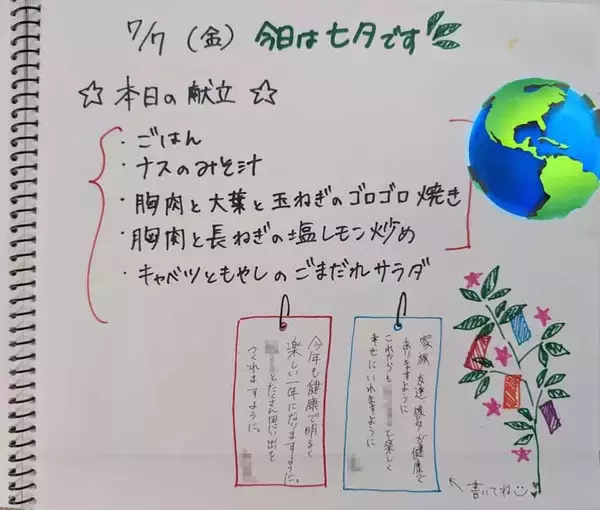 7/7 (金) 今日は七夕です
☆ 本日の献立 ☆
・ごはん
・ナスのみそ汁
・胸肉と大葉と玉ねぎのゴロゴロ焼き
・胸肉と長ねぎの塩レモン炒め
・キャベツともやしのごまだれサラダ
家族、友達、彼女が健康で
ありますように
これからも と楽しく
幸せにいれますように
今年も健康で明るく
楽しい一年になりますように。
とたくさん思い出を
つくれますように。
書いてね